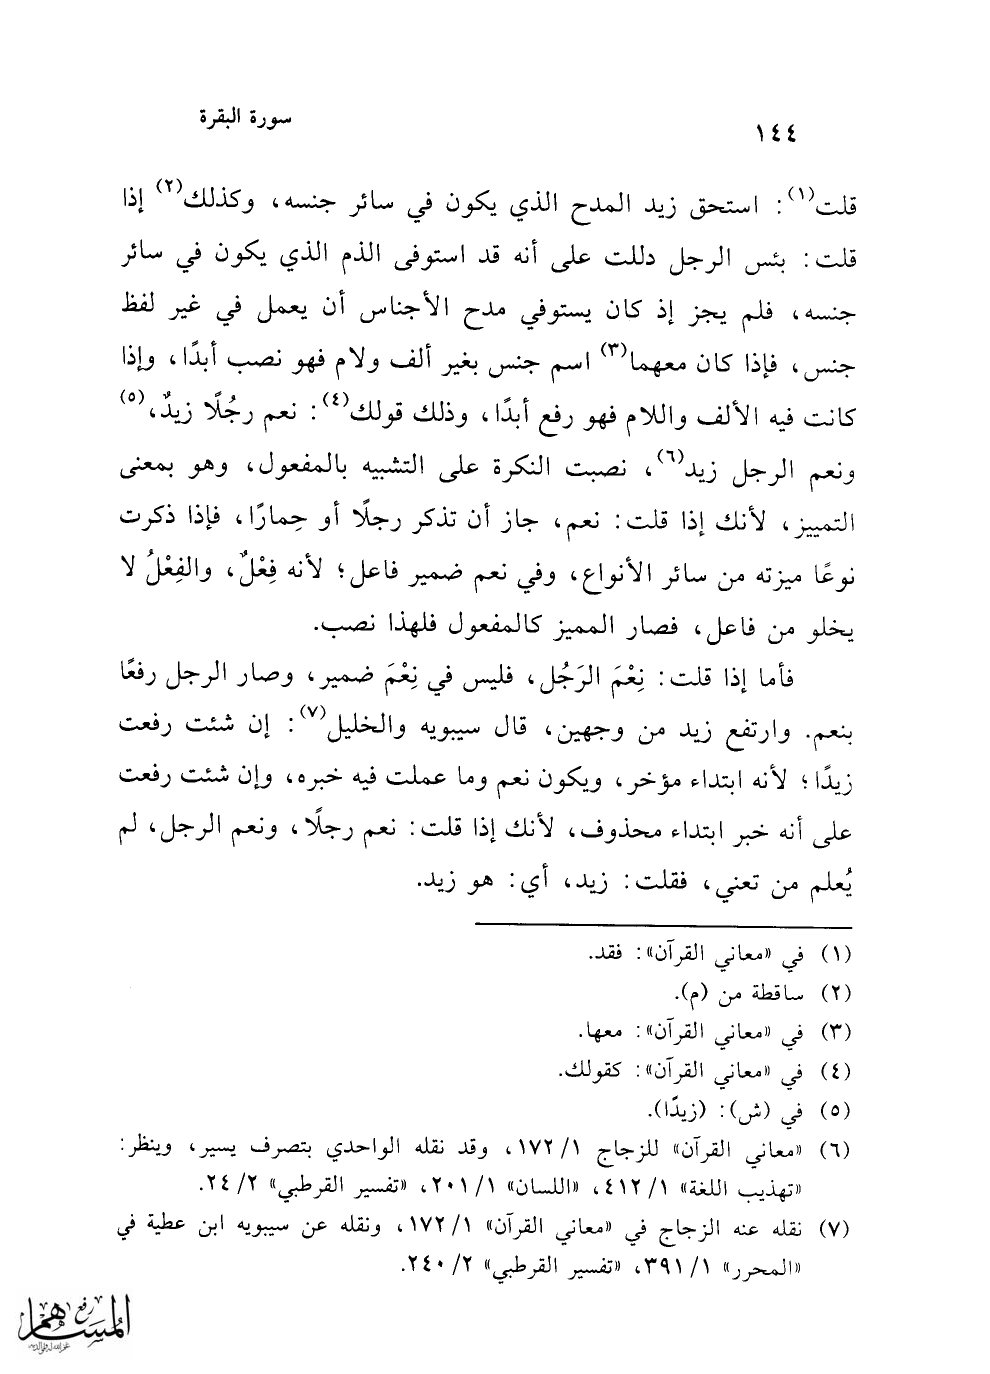 سورة البقرة
١٤٤
قلت(١): استحق زيد المدح الذي يكون في سائر جنسه، وكذلك(٢) إذا
قلت: بئس الرجل دللت على أنه قد استوفى الذم الذي يكون في سائر
جنسه، فلم يجز إذ كان يستوفي مدح الأجناس أن يعمل في غير لفظ
جنس، فإذا كان معهما(٣) اسم جنس بغير ألف ولام فهو نصب أبدًا، وإذا
كانت فيه الألف واللام فهو رفع أبدًا، وذلك قولك(٤): نعم رجُلًا زيدٌ،(٥)
ونعم الرجل زيد(٦)، نصبت النكرة على التشبيه بالمفعول، وهو بمعنى
التمييز، لأنك إذا قلت: نعم، جاز أن تذكر رجلًا أو حِمارًا، فإذا ذكرت
نوعًا ميزته من سائر الأنواع، وفي نعم ضمير فاعل؛ لأنه فِعْلٌ، والفِعْلُ لا
يخلو من فاعل، فصار المميز كالمفعول فلهذا نصب.
فأما إذا قلت: نِعْمَ الرَجُل، فليس في نِعْمَ ضمير، وصار الرجل رفعًا
بنعم. وارتفع زيد من وجهين، قال سيبويه والخليل(٧): إن شئت رفعت
زيدًا؛ لأنه ابتداء مؤخر، ويكون نعم وما عملت فيه خبره، وإن شئت رفعت
على أنه خبر ابتداء محذوف، لأنك إذا قلت: نعم رجلًا، ونعم الرجل، لم
يُعلم من تعني، فقلت: زيد، أي: هو زيد.
(١) في «معاني القرآن»: فقد.
(٢) ساقطة من (م).
(٣) في «معاني القرآن»: معها.
(٤) في «معاني القرآن»: كقولك.
(٥) في (ش): (زيدًا).
(٦) «معاني القرآن» للزجاج ١/ ١٧٢، وقد نقله الواحدي بتصرف يسير، وينظر:
«تهذيب اللغة» ١/ ٤١٢، «اللسان» ١/ ٢٠١، «تفسير القرطبي» ٢/ ٢٤.
(٧) نقله عنه الزجاج في «معاني القرآن» ١/ ١٧٢، ونقله عن سيبويه ابن عطية في
«المحرر» ١/ ٣٩١، «تفسير القرطبي» ٢/ ٢٤٠.